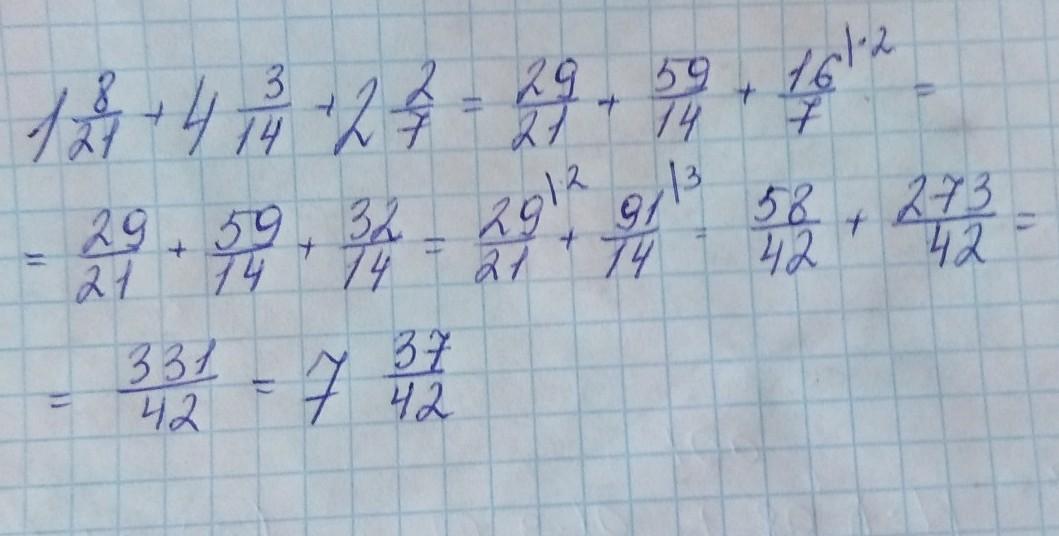 1 8/21 + 4 3/14 + 2 2/7 = 29/21 + 59/14 + 16/7 |·2 =
= 29/21 + 59/14 + 32/14 = 29/21 |·2 + 91/14 |3 = 58/42 + 273/42 =
= 331/42 = 7 37/42